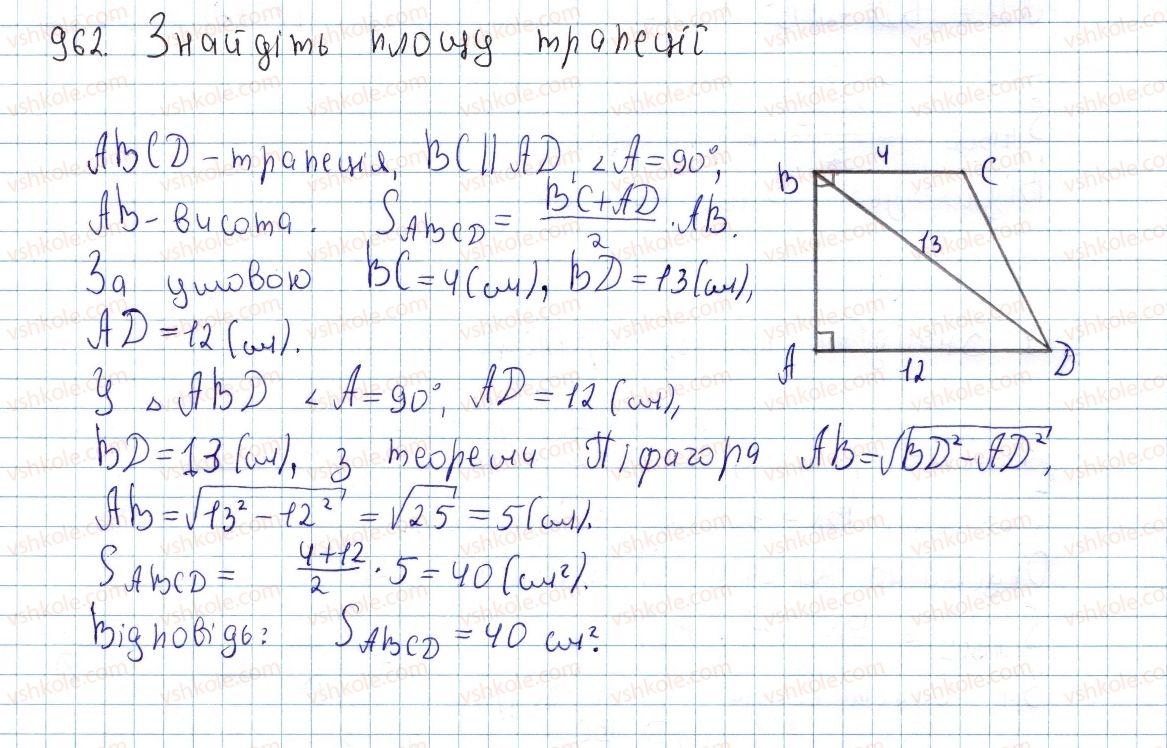 962. Знайдіть площу трапеції
ABCD – трапеція, BC || AD, ∠A = 90°,
AB – висота. S_ABCD = (BC + AD)/2 · AB.
За умовою BC = 4 (см), BD = 13 (см),
AD = 12 (см).
У △ ABD ∠A = 90°, AD = 12 (см),
BD = 13 (см), з теореми Піфагора AB = √(BD² – AD²),
AB = √(13² – 12²) = √25 = 5 (см).
S_ABCD = (4 + 12)/2 · 5 = 40 (см²).
Відповідь: S_ABCD = 40 см².
B 4 C
13
A 12 D
vshkole.com